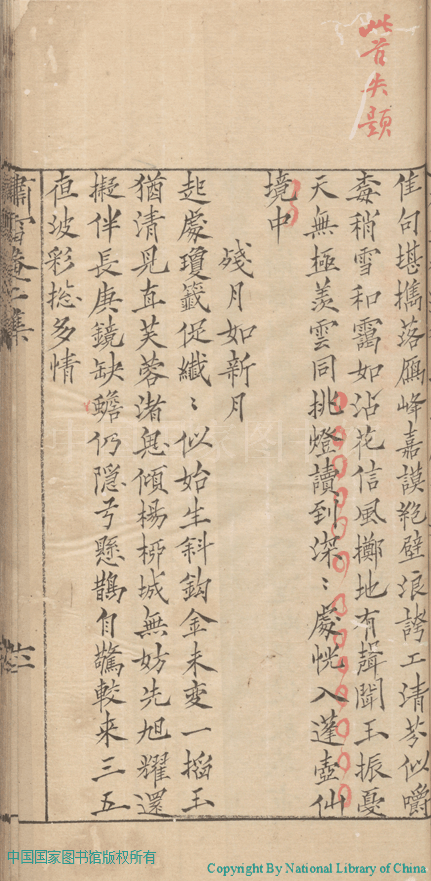 此首失題
佳句堪擕落鴈峰嘉謨絶壁浪誇工清芬似嚼
毒稍雪和靄如沾花信風擲地有聲聞玉振憂
天無極羨雲同挑燈讀到深〻處恍入蓬壺仙
境中
殘月如新月
起處瓊籖促纖〻似始生斜鈎金未变一搯玉
猶清見直芙蓉渚兠傾楊栁城無妨先旭耀還
擬伴長庚鏡缺蟾仍隐弓懸鵲自驚較来三五
夜波彩㧾多情
二集
中国国家图书馆版权所有
Copyright By National Library of China